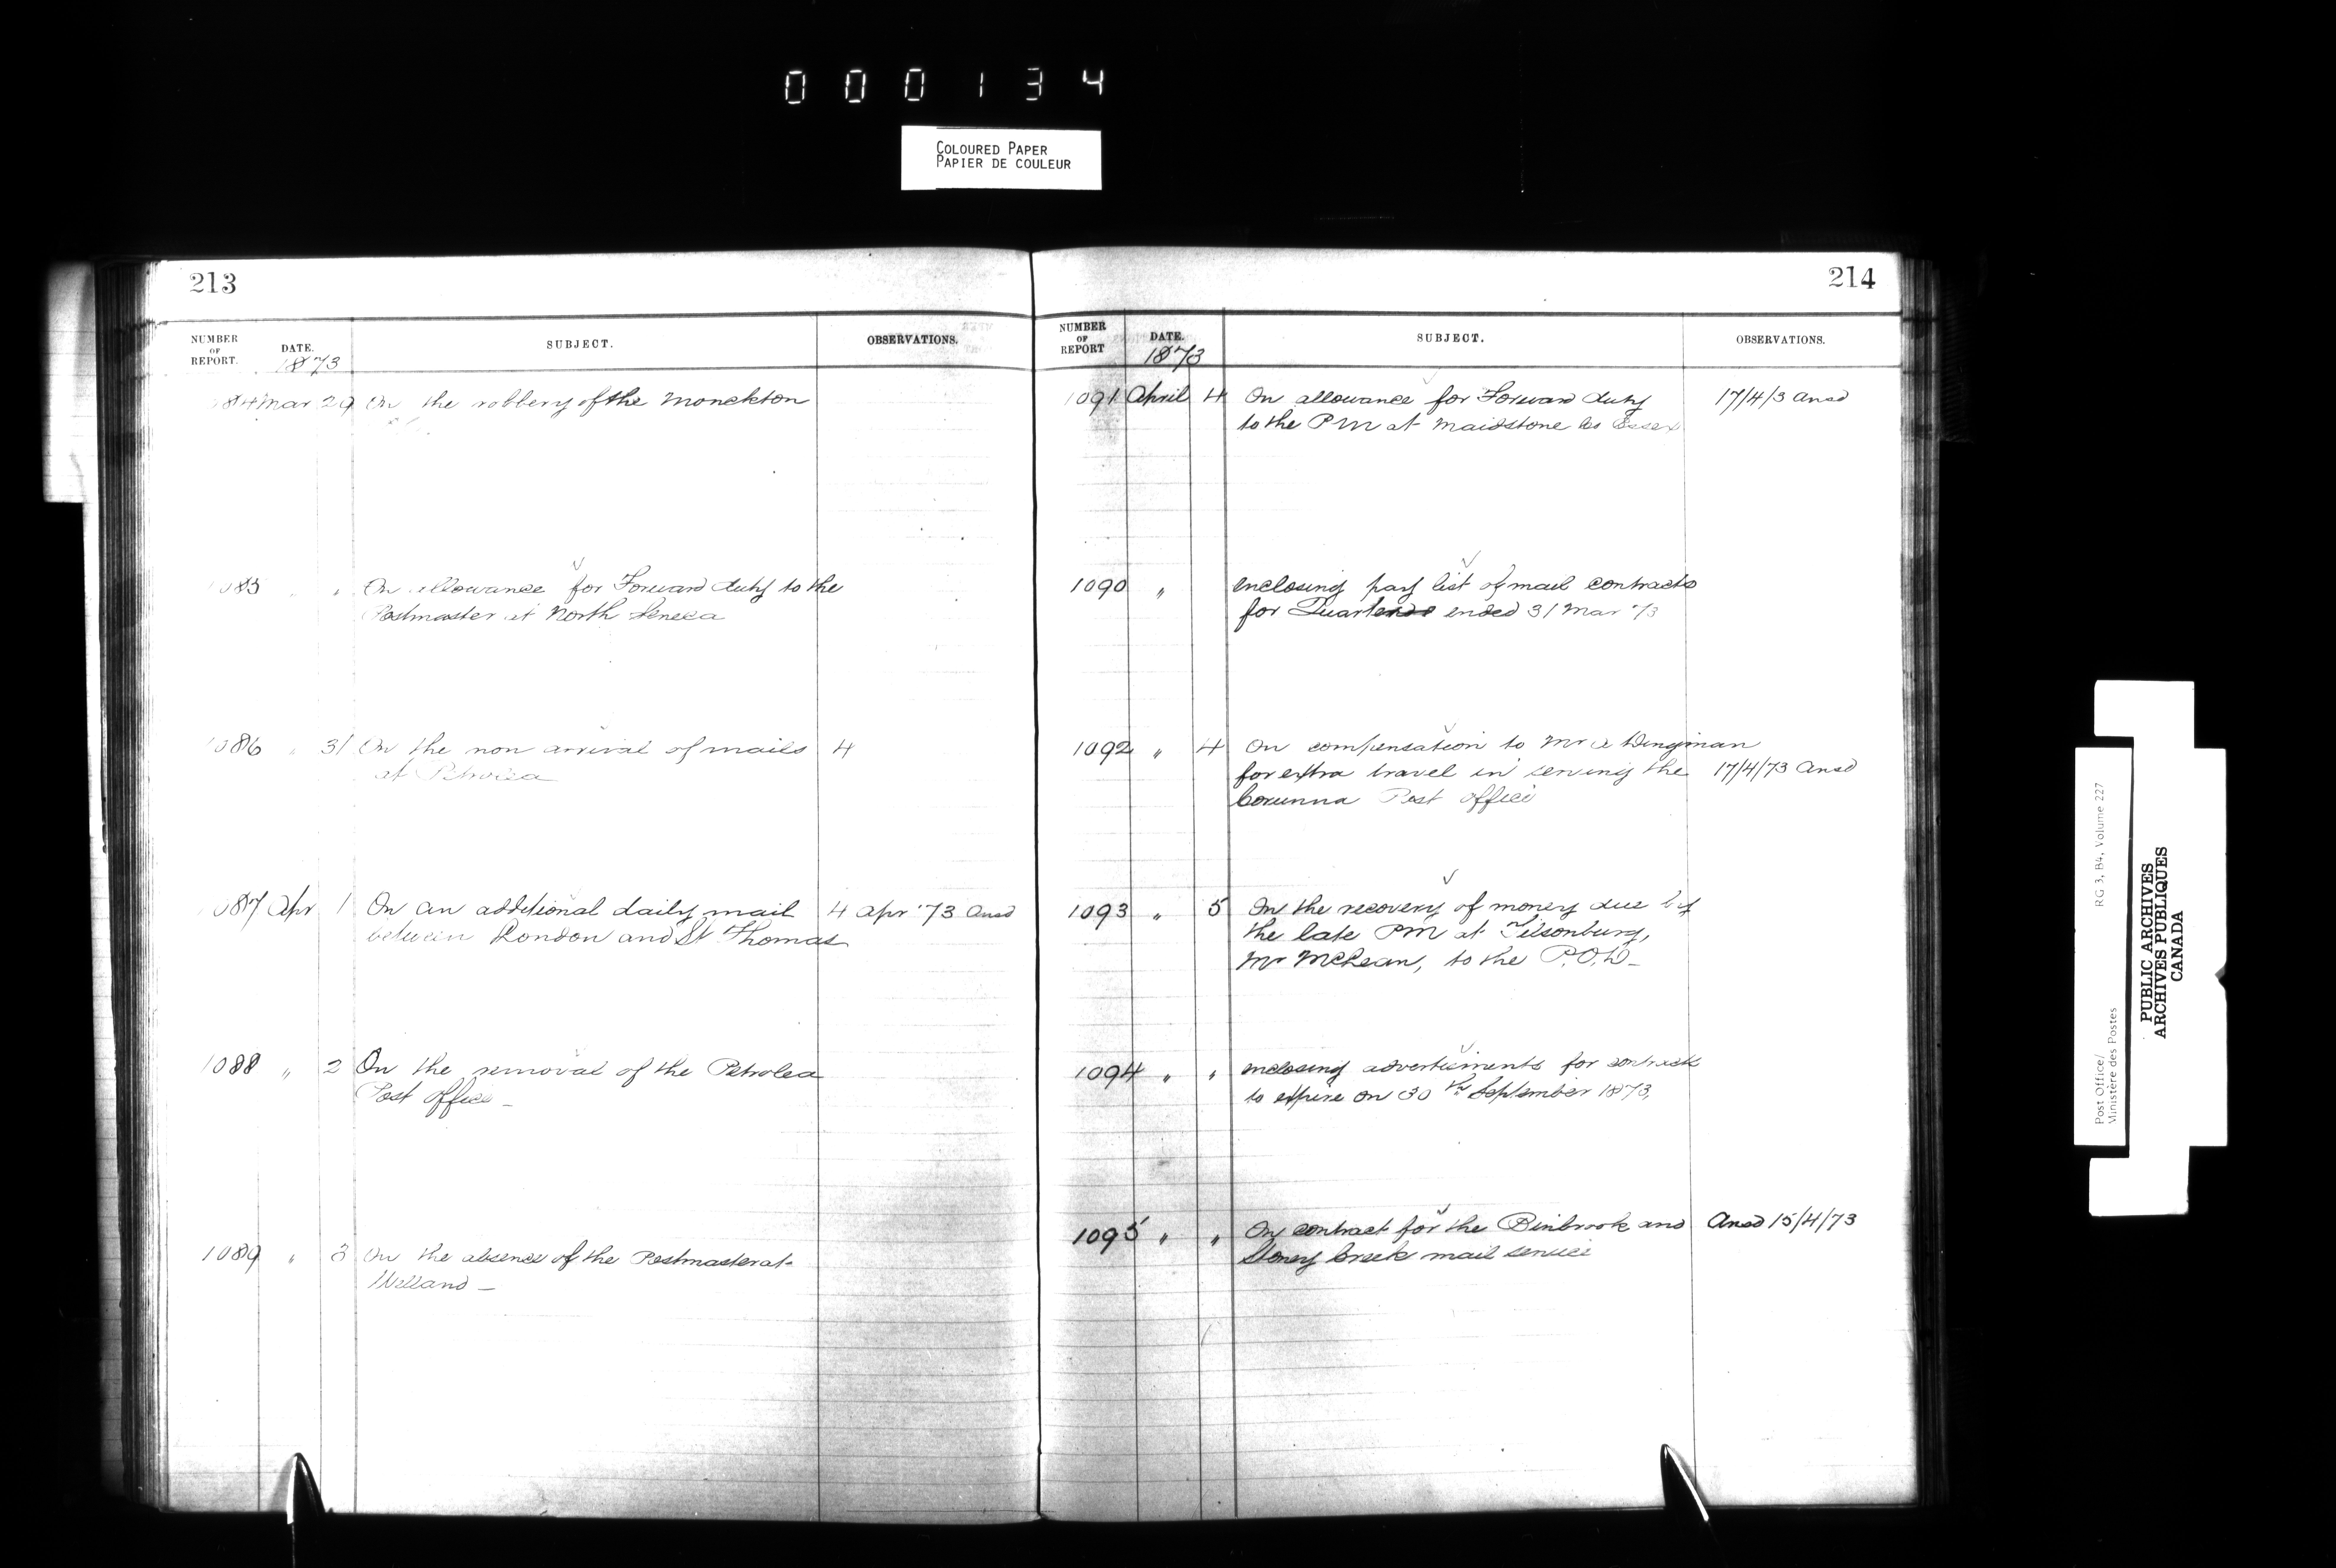 000134
COLOURED PAPER
PAPIER DE COULEUR
213
NUMBER OF REPORT. DATE. SUBJECT. OBSERVATIONS.
1873
84 Mar 29 On the robbery of the Monckton
1085 " " On allowance for Forward duty to the
Postmaster at North Seneca
1086 " 31 On the non arrival of mails 4
at Petrolea
1087 Apr 1 On an additional daily mail 4 Apr '73 Ansd
between London and St Thomas
1088 " 2 On the removal of the Petrolea
Post Office -
1089 " 3 On the absence of the Postmaster at
Welland -
214
NUMBER OF REPORT DATE. SUBJECT. OBSERVATIONS.
1873
1091 April 4 On allowance for Forward duty 17/4/3 Ansd
to the PM at Maidstone Co Essex
1090 " Enclosing pay list of mail contracts
for Quarter ended 31 Mar '73
1092 " 4 On compensation to Mr A Wingman
for extra travel in serving the 17/4/73 Ansd
Corunna Post Office
1093 " 5 On the recovery of money due by
the late PM at Tilsonburg,
Mr McLean, to the P.O.D-
1094 " " Enclosing advertisments for contracts
to expire on 30th September 1873,
1095 " " On contract for the Binbrook and Ansd 15/4/73
Stoney Creek mail service
Post Office/ RG 3, B4, Volume 227
Ministère des Postes
PUBLIC ARCHIVES
ARCHIVES PUBLIQUES
CANADA